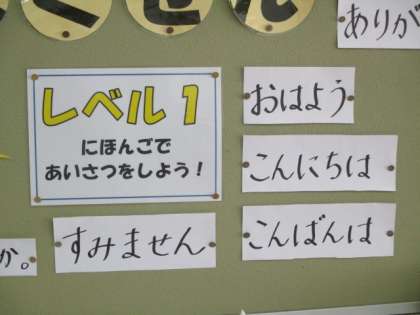 レベル1
にほんごで
あいさつをしよう!
ありが
おはよう
こんにちは
こんばんは
すみません
か。